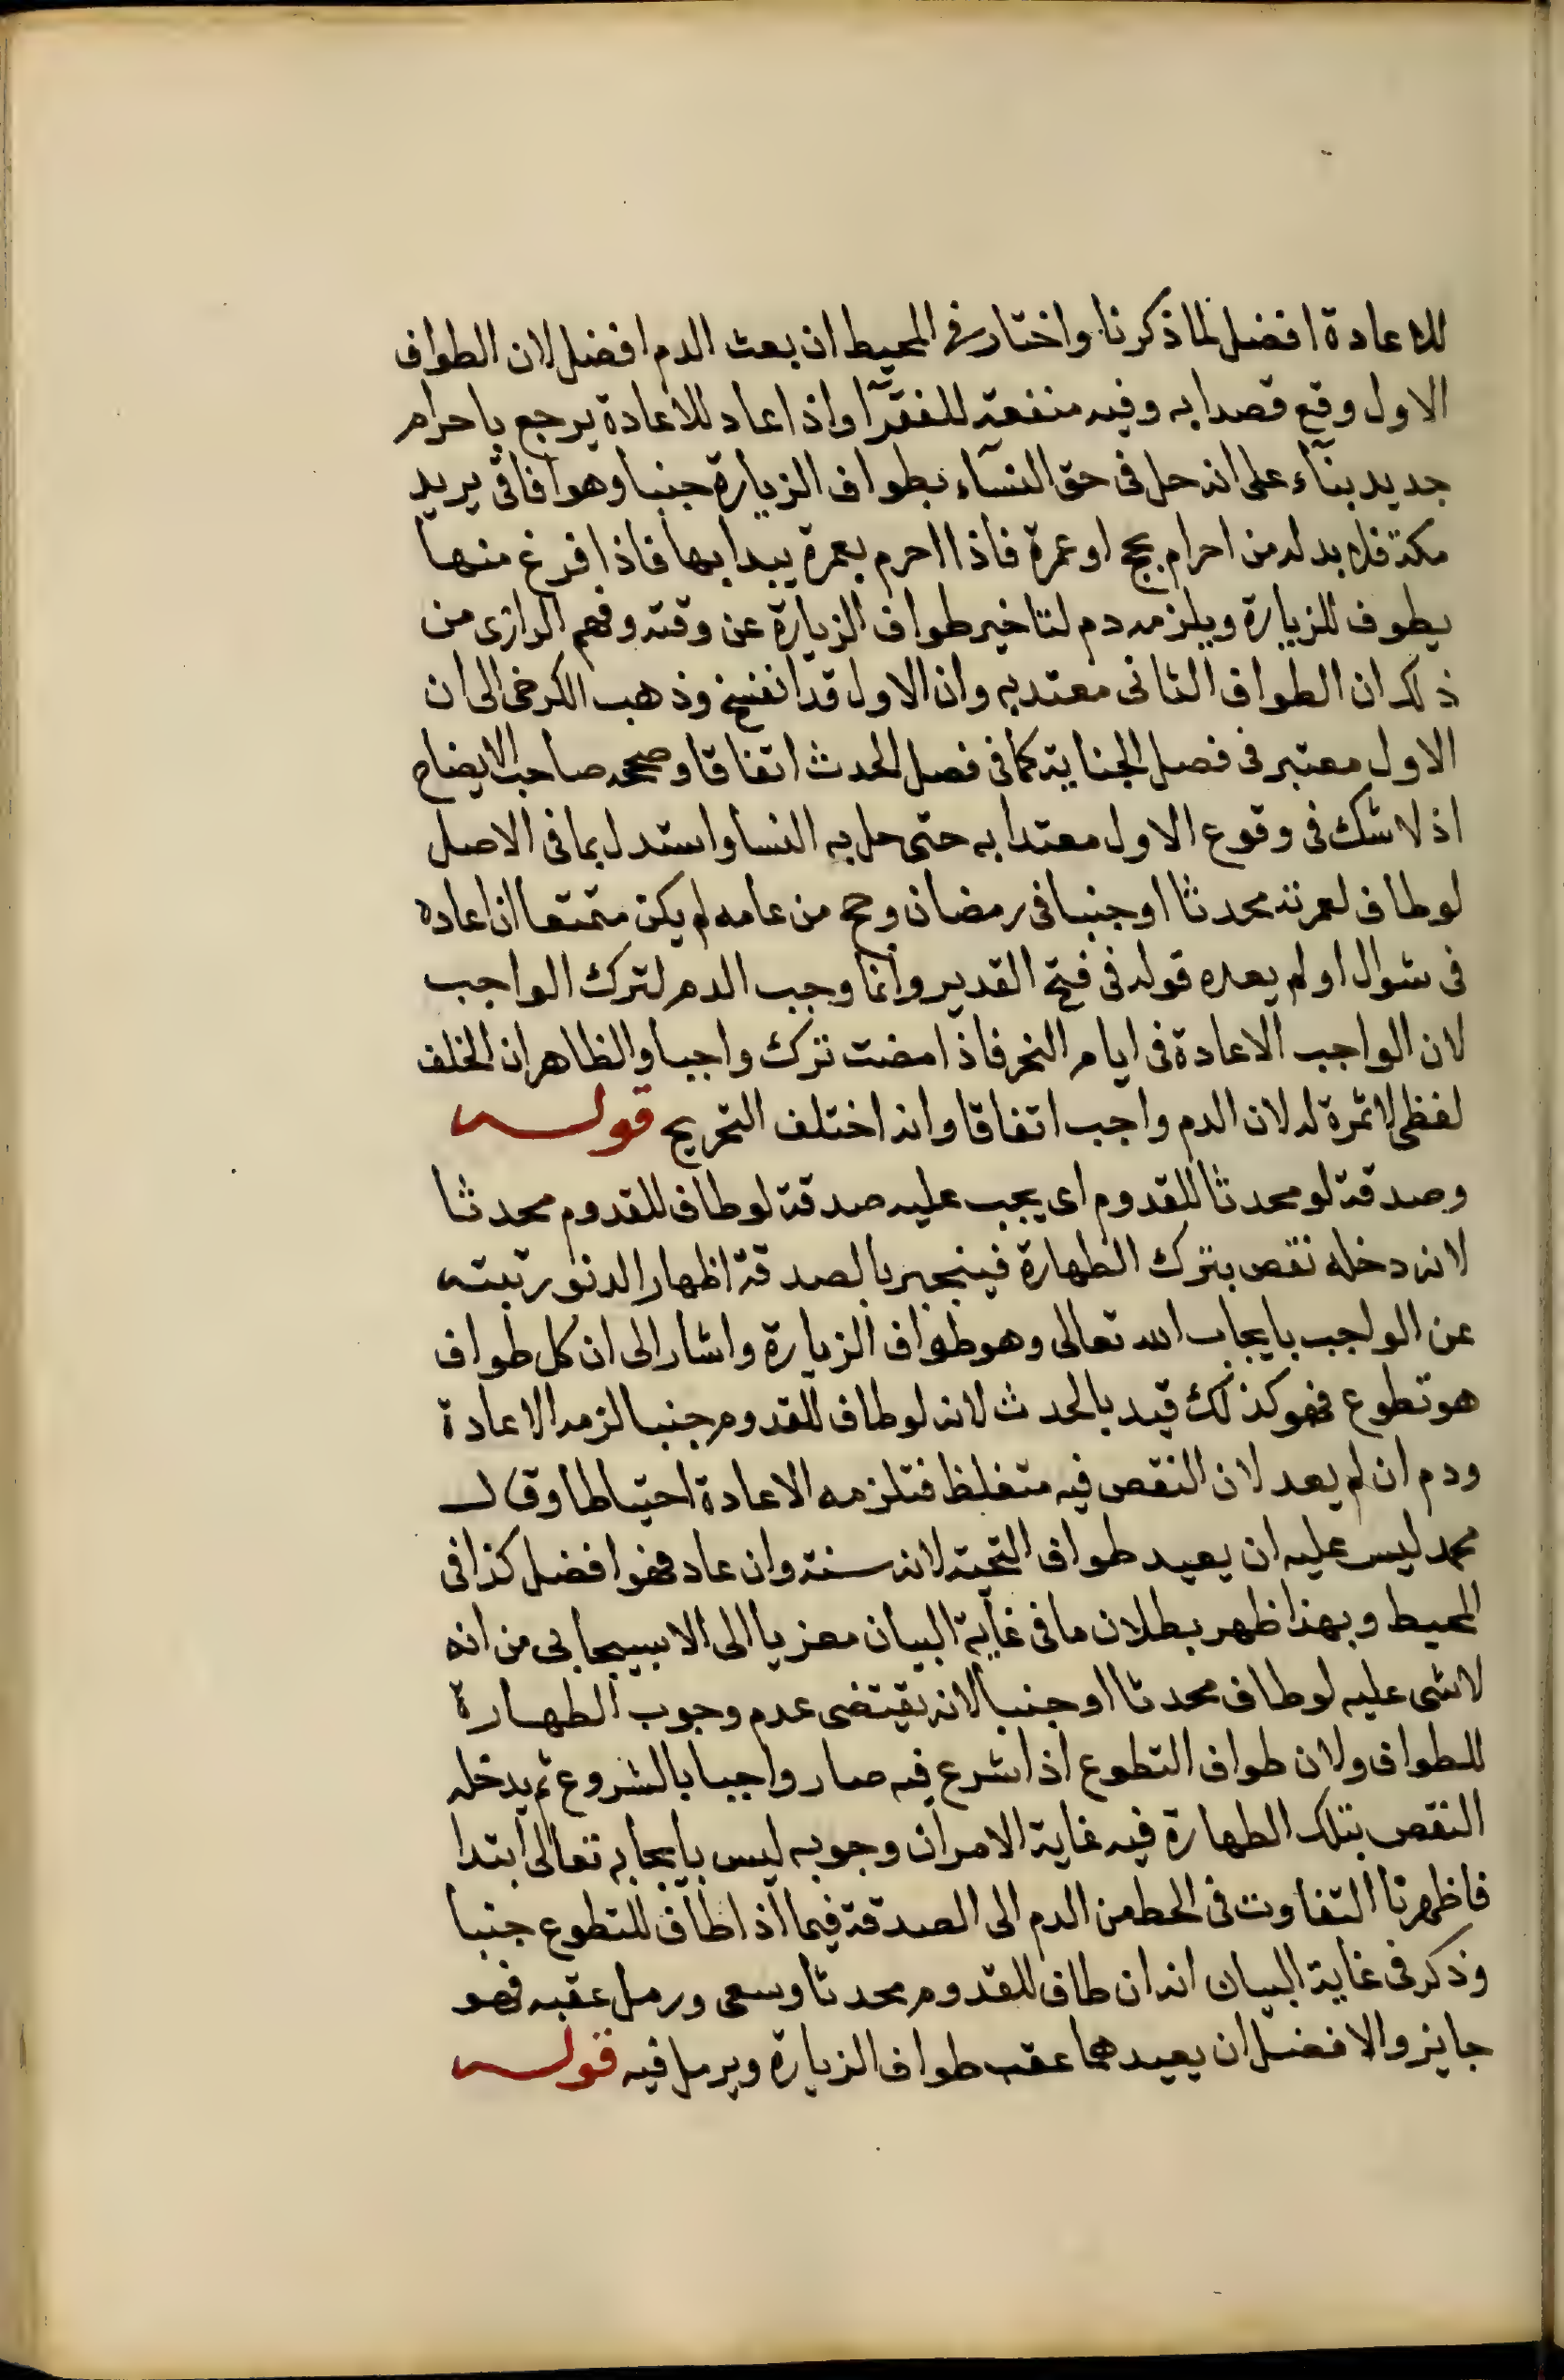 للاعادة افضل لما ذكرنا واختار في المحيط ان بعث الدم افضل لان الطواف
الاول وقع قصدا به وفيه منفعة للفقرآ واذا عاد للاعادة يرجع باحرام
جديد بنآء على انه حل فى حق النسآء بطواف الزيارة جنبا وهو افاقى يريد
مكة فلا بد له من احرام بحج او عمرة فاذا احرم بعمرة يبدا بها فاذا فرغ منها
يطوف للزيارة ويلزمه دم لتاخير طواف الزيارة عن وقته وفهم الرازى من
ذلك ان الطواف الثانى معتد به وان الاول قد انفسخ وذهب الكرخى الى ان
الاول معتبر فى فصل الجنابة كما فى فصل الحدث اتفاقا وصححه صاحب الايضاح
اذ لا شك فى وقوع الاول معتدا به حتى حل به النسا واستدل بما فى الاصل
لو طاف لعمرته محدثا او جنبا فى رمضان وحج من عامه لم يكن متمتعا ان اعاده
فى شوال او لم يعده قوله فى فتح القدير وانما وجب الدم لترك الواجب
لان الواجب الاعادة فى ايام النحر فاذا مضت ترك واجبا والظاهر ان الخلف
لفظى لا ثمرة له لان الدم واجب اتفاقا وانه اختلف التخريج قوله
وصدقة لو محدثا للقدوم اى يجب عليه صدقة لو طاف للقدوم محدثا
لانه دخله نقص بترك الطهارة فينجبر بالصدقة اظهارا لدنو رتبته
عن الواجب بايجاب الله تعالى وهو طواف الزيارة واشار الى ان كل طواف
هو تطوع فهو كذلك قيد بالحدث لانه لو طاف للقدوم جنبا لزمه الاعادة
ودم ان لم يعد لان النقص فيه متغلظ فتلزمه الاعادة احتياطا وقال
محمد ليس عليه ان يعيد طواف التحية لانه سنة وان عاد فهو افضل كذا فى
المحيط وبهذا ظهر بطلان ما فى غاية البيان معزيا الى الاسبيجابى من انه
لا شى عليه لو طاف محدثا او جنبا لانه يقتضى عدم وجوب الطهارة
للطواف ولان طواف التطوع اذا شرع فيه صار واجبا بالشروع ثم يدخله
النقص بتلك الطهارة فيه غاية الامر ان وجوبه ليس بايجابه تعالى ابتدا
فاظهرنا التفاوت فى الحط من الدم الى الصدقة فيما اذا طاف للتطوع جنبا
وذكر فى غاية البيان انه ان طاف للقدوم محدثا وسعى ورمل عقبه فهو
جايز والافضل ان يعيدهما عقب طواف الزيارة ويرمل فيه قوله